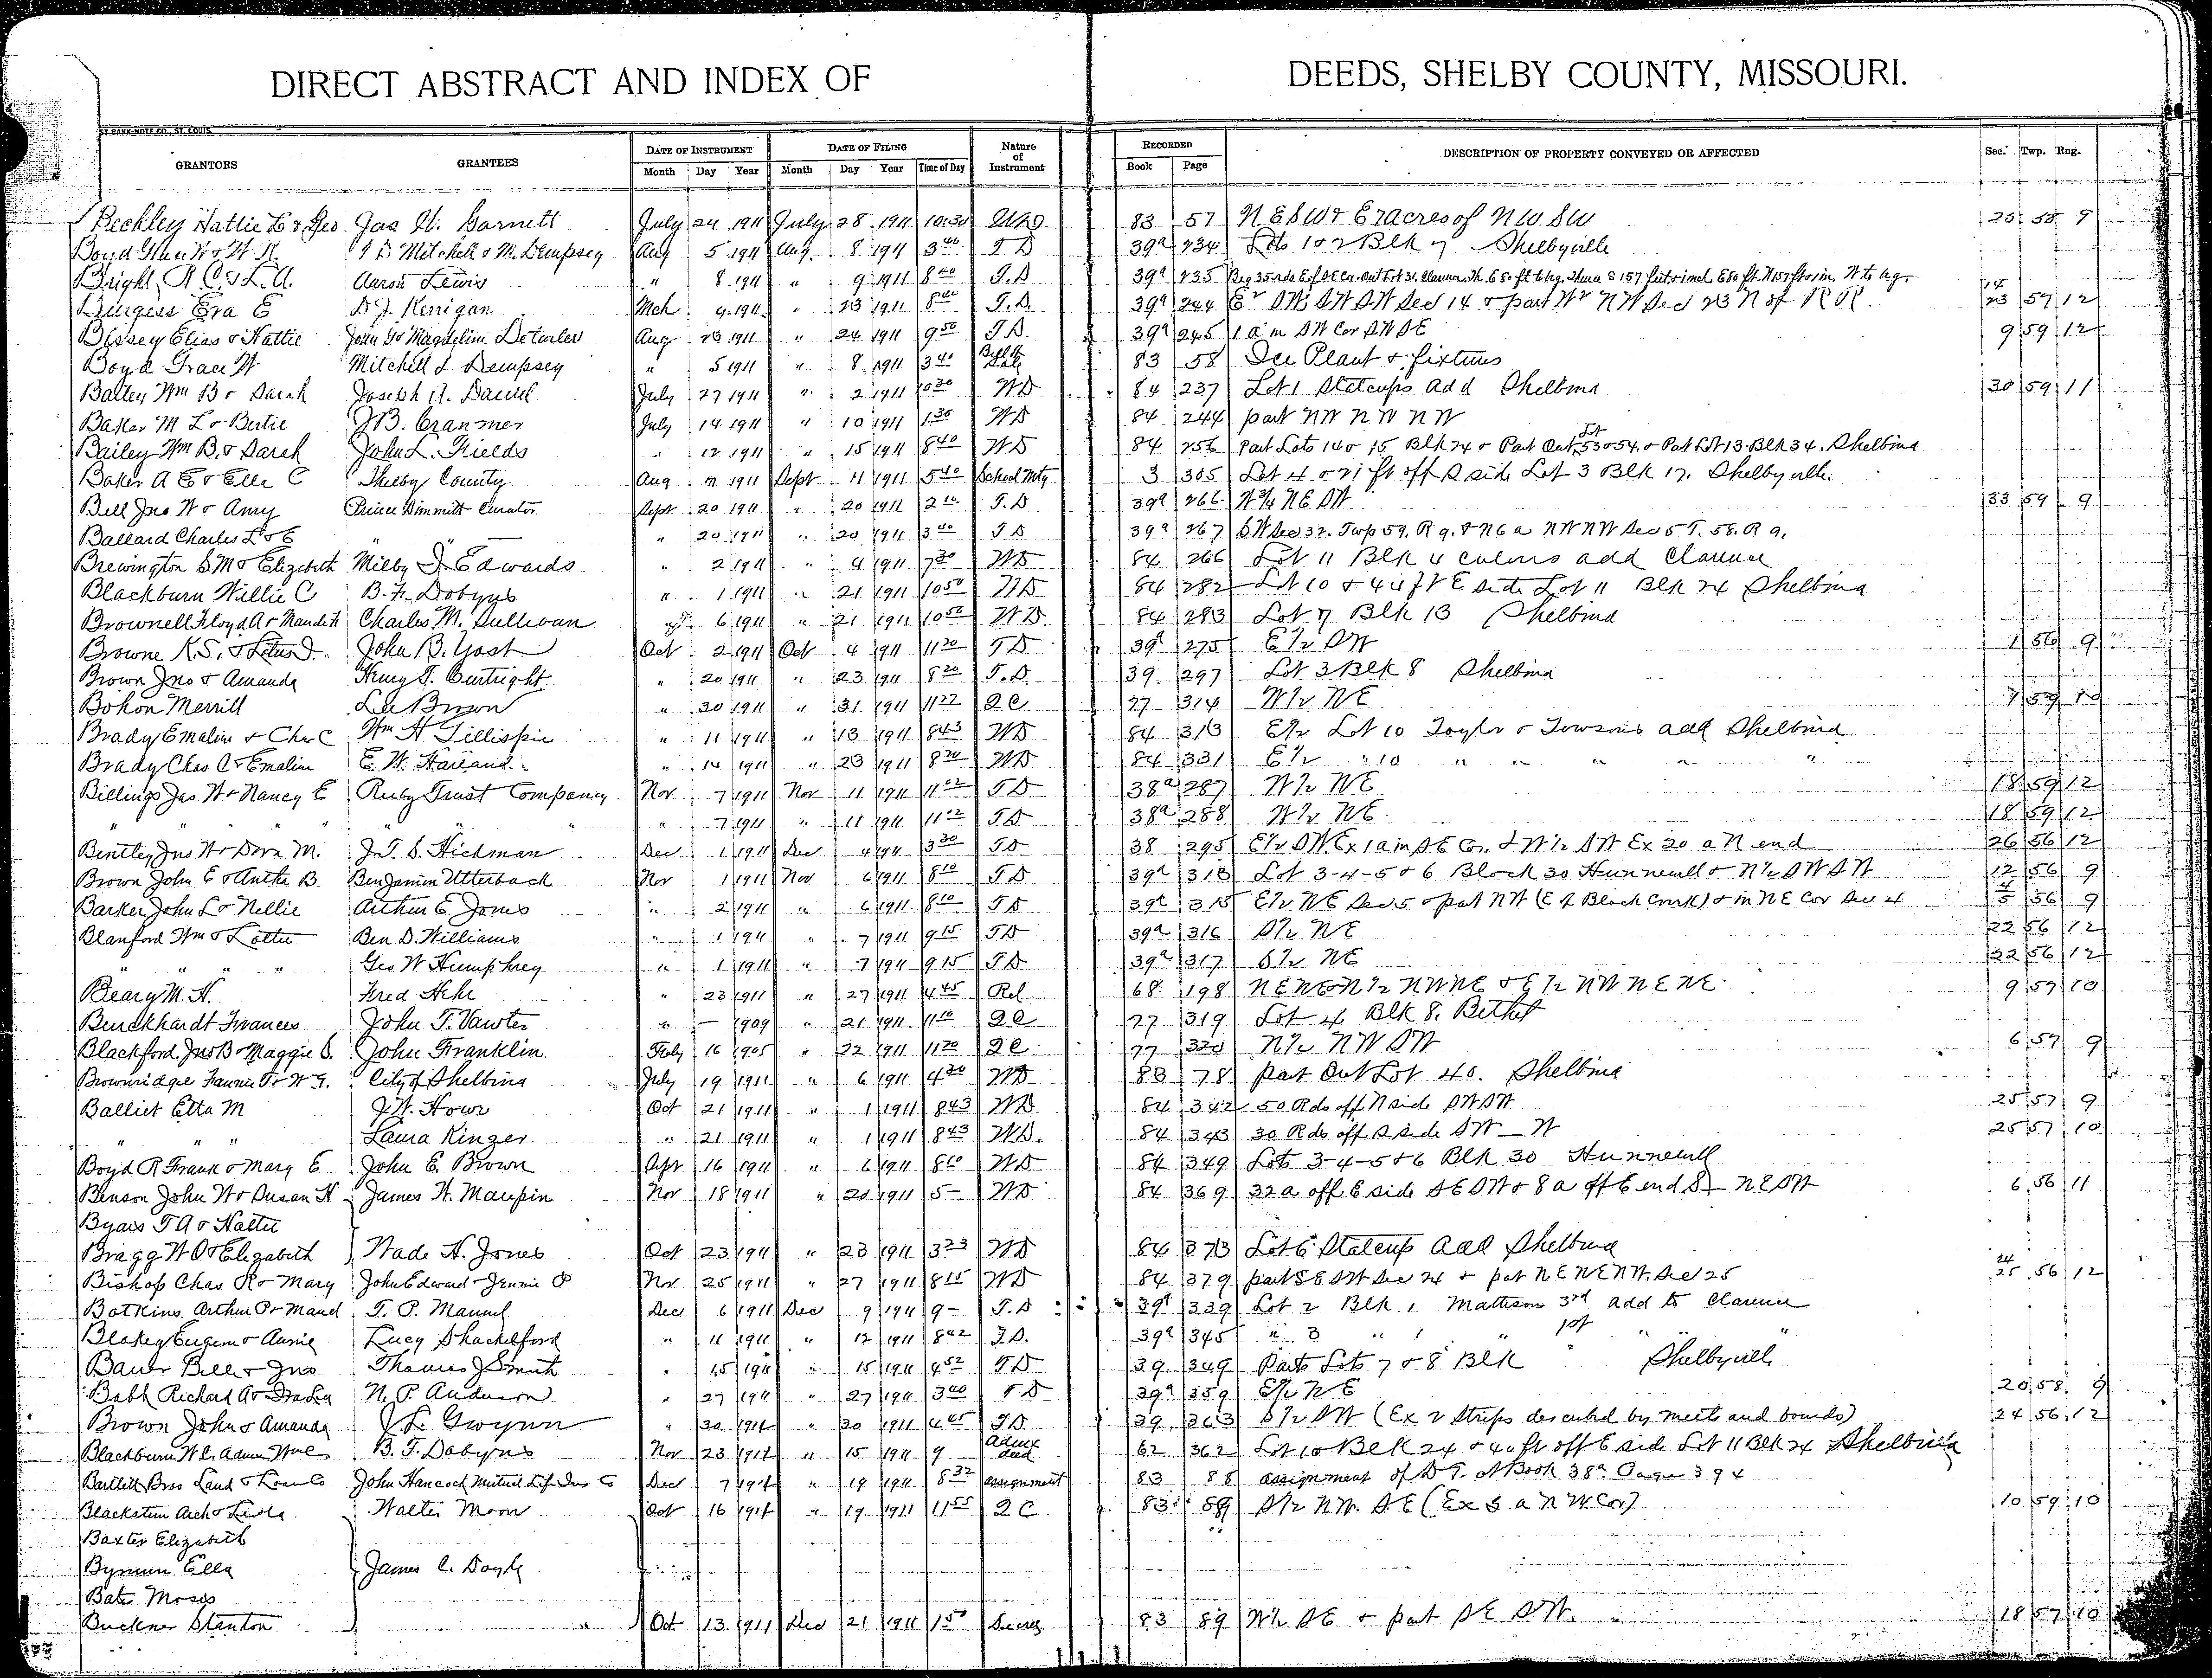 DIRECT ABSTRACT AND INDEX OF DEEDS, SHELBY COUNTY, MISSOURI.
ST BANK-NOTE CO., ST. LOUIS.
GRANTORS GRANTEES DATE OF INSTRUMENT DATE OF FILING Nature of Instrument RECORDED DESCRIPTION OF PROPERTY CONVEYED OR AFFECTED Sec. Twp. Rng.
Month Day Year Month Day Year Time of Day Book Page
Beckley Hattie E & Geo Jas W. Garnett July 24 1911 July 28 1911 10:30 83 57 N E S W & E 2 acres of N W S W 25 58 9
Boyd Grace W & W. H. Mitchell & M. Dempsey Aug 5 1911 Aug 8 1911 3 40 T D 39a 234 Lots 1 & 2 Blk 7 Shelbyville
Bright, R. C. & L. A. Aaron Lewis " 8 1911 " 9 1911 8 40 T. D 39a 235
Burgess Eva E D. J. Kerrigan Mch 9 1911 " 23 1911 8 40 T. D. 39a 244 Sec 14 & part N W Sec 23 N of R R. 14 23 57 12
Bissey Elias & Hattie Aug 23 1911 " 24 1911 9 50 T. D. 39a 245 1 a in S W Cor S W S E 9 59 12
Boyd Grace W Mitchell & Dempsey " 5 1911 " 8 1911 3 40 Bill of Sale 83 58 Ice Plant & fixtures
Bailey Wm B & Sarah Joseph H. Daniel July 27 1911 " 2 1911 10 30 W D 84 237 Lot 1 Stalcups add Shelbina 30 59 11
Baker M L & Bertie J. B. Cranmer July 14 1911 " 10 1911 1 30 W D 84 244 part N W N W N W
Bailey Wm B. & Sarah John L. Fields " 12 1911 " 15 1911 8 40 W D 84 256 Part Lots 14 & 15 Blk 24 & Part Out Lot 53 & 54, & Part Lot 13 Blk 34. Shelbina
Baker A E & Ella C Shelby County Aug 1911 Sept 11 1911 5 40 School Mtg 3 305 Lot 4 & 21 ft off S side Lot 3 Blk 17. Shelbyville.
Bell Jno W & Amy Prince Dimmitt Curator Sept 20 1911 " 20 1911 2 10 T. D 39a 266 W 3/4 N E S W 33 59 9
Ballard Charles L & E " " " 20 1911 " 20 1911 3 40 T D 39a 267 S W Sec 32. Twp 59. R 9. & N 6 a N W N W Sec 5 T. 58. R 9.
Brewington S M & Elizabeth Milby J. Edwards " 2 1911 " 4 1911 7 30 W D 84 266 Lot 11 Blk 4 add Clarence
Blackburn Willie C B. F. Dobyns " 1 1911 " 21 1911 10 50 W D 84 282 Lot 10 & 44 ft E side Lot 11 Blk 24 Shelbina
Brownell Floyd A & Maude H Charles M. Sullivan " 6 1911 " 21 1911 10 50 W D. 84 283 Lot 7 Blk 13 Shelbina
Browne K. S. & John B. Yost Oct 2 1911 Oct 4 1911 11 20 T D 39a 275 E 1/2 S W 1 56 9
Brown Jno & Amanda Henry T. Curtright " 20 1911 " 23 1911 8 20 T. D. 39 297 Lot 3 Blk 8 Shelbina
Bohon Merrill Lee Brown " 30 1911 " 31 1911 11 22 Q C 77 314 W 1/2 N E 7 59 10
Brady Emaline & Chas C Wm H Gillispie " 11 1911 " 13 1911 8 43 W D 84 313 E 1/2 Lot 10 Taylor & Towsons add Shelbina
Brady Chas C & Emaline E. W. " 14 1911 " 23 1911 8 20 W D 84 331 E 1/2 " 10 " " " " "
Billings Jas W & Nancy E Ruby Trust Company Nov 7 1911 Nov 11 1911 11 02 T D 38a 287 W 1/2 N E 18 59 12
" " " " " 7 1911 " 11 1911 11 02 T D 38a 288 W 1/2 N E. 18 59 12
Bentley Jno W & Dora M. J. T. S. Hickman Dec 1 1911 Dec 4 1911 3 30 T D 38 295 E 1/2 S W Ex 1 a in S E Cor. & W 1/2 S W Ex 20 a N end 26 56 12
Brown John E & B. Benjamin Utterback Nov 1 1911 Nov 6 1911 8 10 T D 39a 313 Lot 3-4-5 & 6 Block 30 Hunnewell & N 1/2 S W S W 12 56 9
Barker John L & Nellie Arthur E Jones " 2 1911 " 6 1911 8 10 T D 39a 315 E 1/2 N E Sec 5 & part N W (E of Black Creek) & in N E Cor Sec 4 4 5 56 9
Blanford Wm & Lottie Ben D. Williams " 1 1911 " 7 1911 9 15 T D 39a 316 S 1/2 N E 22 56 12
" " " " Geo W Humphrey " 1 1911 " 7 1911 9 15 T D 39a 317 S 1/2 N E 22 56 12
Beary M. H. Fred Hehr " 23 1911 " 27 1911 4 45 Rel 68 198 N E N E & N 1/2 N W N E & E 1/2 N W N E N E. 9 57 10
Burckhardt Frances John T. Vawter " — 1909 " 21 1911 11 10 Q C 77 319 Lot 4 Blk 8. Bethel
Blackford Jno B & Maggie S. John Franklin Feby 16 1905 " 22 1911 11 20 Q C 77 320 N 1/2 N W S W 6 57 9
Brownridge Fannie T & W. G. City of Shelbina July 19 1911 " 6 1911 4 30 W D 83 78 part Out Lot 40. Shelbina
Balliet Etta M J. W. Howe Oct 21 1911 " 1 1911 8 43 W D 84 342 50 Rds off N side S W S W 25 57 9
" " " Laura Ringer " 21 1911 " 1 1911 8 43 W D. 84 343 30 Rds off S side S W — W 25 57 10
Boyd R Frank & Mary E John E. Brown Sept 16 1911 " 6 1911 8 10 W D 84 349 Lots 3-4-5 & 6 Blk 30 Hunnewell
Benson John W & Susan H James W. Maupin Nov 18 1911 " 20 1911 5 – W D 84 369 32 a off E side S E S W & 8 a off E end S 1/2 N E S W 6 56 11
Byars T A & Hattie
Bragg W O & Elizabeth } Wade H. Jones Oct 23 1911 " 23 1911 3 23 W D 84 373 Lot 6 Stalcups Add Shelbina
Bishop Chas R & Mary John Edward & Jennie P Nov 25 1911 " 27 1911 8 15 W D 84 379 part S E S W Sec 24 & part N E N E N W. Sec 25 24 25 56 12
Botkins Arthur P & Maud T. P. Manuel Dec 6 1911 Dec 9 1911 9 – T. D 39a 339 Lot 2 Blk 1 Mattison 3rd add to Clarence
Blakey Eugene & Annie Lucy Shackelford " 11 1911 " 12 1911 8 42 T. D. 39a 345 " 3 " 1 " 1st " "
Bauer Belle & Jno Thomas J Smith " 15 1911 " 15 1911 4 52 T D 39 349 Parts Lots 7 & 8 Blk " Shelbyville
Babb Richard A & N. P. Anderson " 27 1911 " 27 1911 3 00 T D 39a 359 E 1/2 N E 20 58 9
Brown John & Amanda J. L. Gwynn " 30 1911 " 30 1911 4 05 T D 39 363 S 1/2 S W (Ex 2 Strips described by meets and bounds) 24 56 12
Blackburn W C. Admr B. F. Dobyns Nov 23 1911 " 15 1911 9 Admx deed 62 362 Lot 10 Blk 24 & 40 ft off E side Lot 11 Blk 24 Shelbina
Bartlett Bros Land & Loan Co John Hancock Mutual Life Ins Co Dec 7 1911 " 19 1911 8 32 assignment 83 88 assignment of D T. Book 38a Page 394
Arch & Walter Moon Oct 16 1911 " 19 1911 11 55 Q C 83 59 S 1/2 N W. S E (Ex 3 a N W. Cor) 10 59 10
Baxter Elizabeth
Bynum Ella James C. Doyle
Bates Moses
Buckner Stanton " Oct 13 1911 Dec 21 1911 1 50 Decree 83 89 W 1/2 S E & part S E S W. 18 57 10